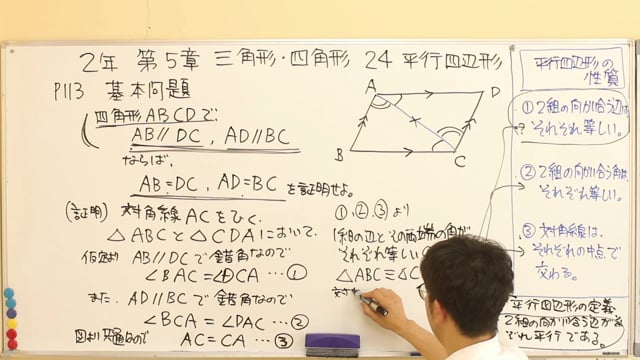 2年 第5章 三角形・四角形 24 平行四辺形
P113 基本問題
四角形ABCDで
AB∥DC, AD∥BC
ならば、
AB=DC, AD=BC を証明せよ。
(証明) 対角線ACをひく。
△ABCと△CDAにおいて、
仮定より AB∥DCで錯角なので
∠BAC=∠DCA …①
また、AD∥BCで錯角なので
∠BCA=∠DAC …②
図より 共通なので AC=CA …③
A
D
B
C
①,②,③より
1組の辺とその両端の角が
それぞれ等しい
△ABC≡△C
対
平行四辺形の
性質
①2組の向かい合う辺は
それぞれ等しい。
②2組の向かい合う角は、
それぞれ等しい。
③対角線は、
それぞれの中点で
交わる。
平行四辺形の定義
2組の向かい合う辺が
ぞれ平行である。